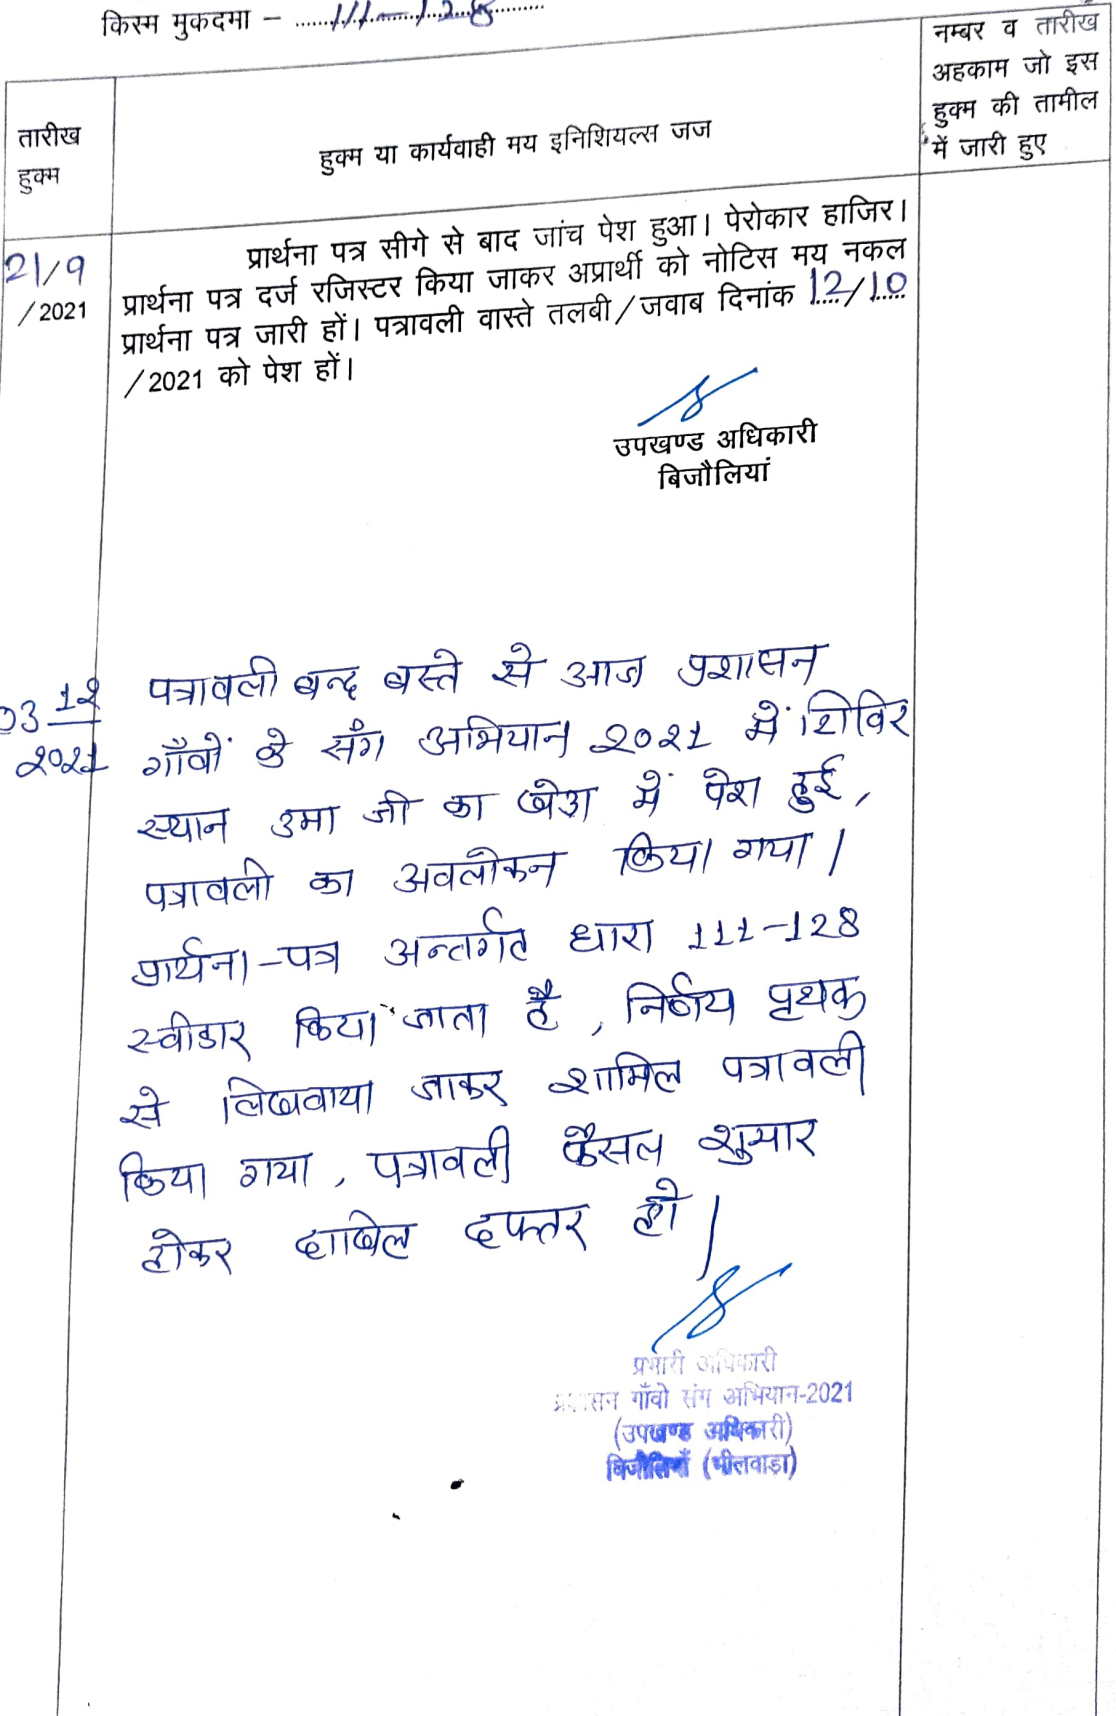 किस्म मुकदमा – 111-128
नम्बर व तारीख
अहकाम जो इस
हुक्म की तामील
में जारी हुए
तारीख
हुक्म
हुक्म या कार्यवाही मय इनिशियल्स जज
21/9
/2021
प्रार्थना पत्र सीगे से बाद जांच पेश हुआ। पेरोकार हाजिर।
प्रार्थना पत्र दर्ज रजिस्टर किया जाकर अप्रार्थी को नोटिस मय नकल
प्रार्थना पत्र जारी हों। पत्रावली वास्ते तलबी/जवाब दिनांक 12/10
/2021 को पेश हों।
उपखण्ड अधिकारी
बिजौलियां
03 12
2021
पत्रावली बन्द बस्ते से आज प्रशासन
गाँवों के सँग अभियान 2021 में शिविर
स्थान उमा जी का खेडा में पेश हुई,
पत्रावली का अवलोकन किया गया।
प्रार्थना-पत्र अन्तर्गत धारा 111-128
स्वीकार किया जाता है, निर्णय पृथक
से लिखवाया जाकर शामिल पत्रावली
किया गया, पत्रावली फैसल शुमार
होकर दाखिल दफ्तर हो।
प्रभारी अधिकारी
प्रशासन गाँवो संग अभियान-2021
(उपखण्ड अधिकारी)
बिजौलियाँ (भीलवाड़ा)